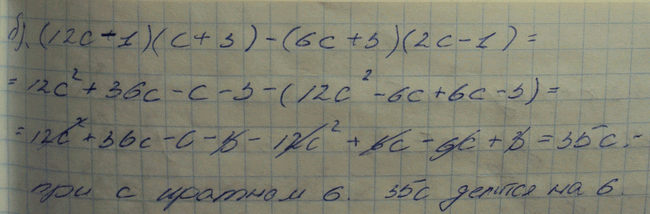 б). (12c-1)(c+3)-(6c+3)(2c-1)=
=12c²+36c-c-3-(12c²-6c+6c-3)=
=12c²+36c-c-3-12c²+6c-6c+3=35c.-
при c кратном 6. 35c делится на 6.